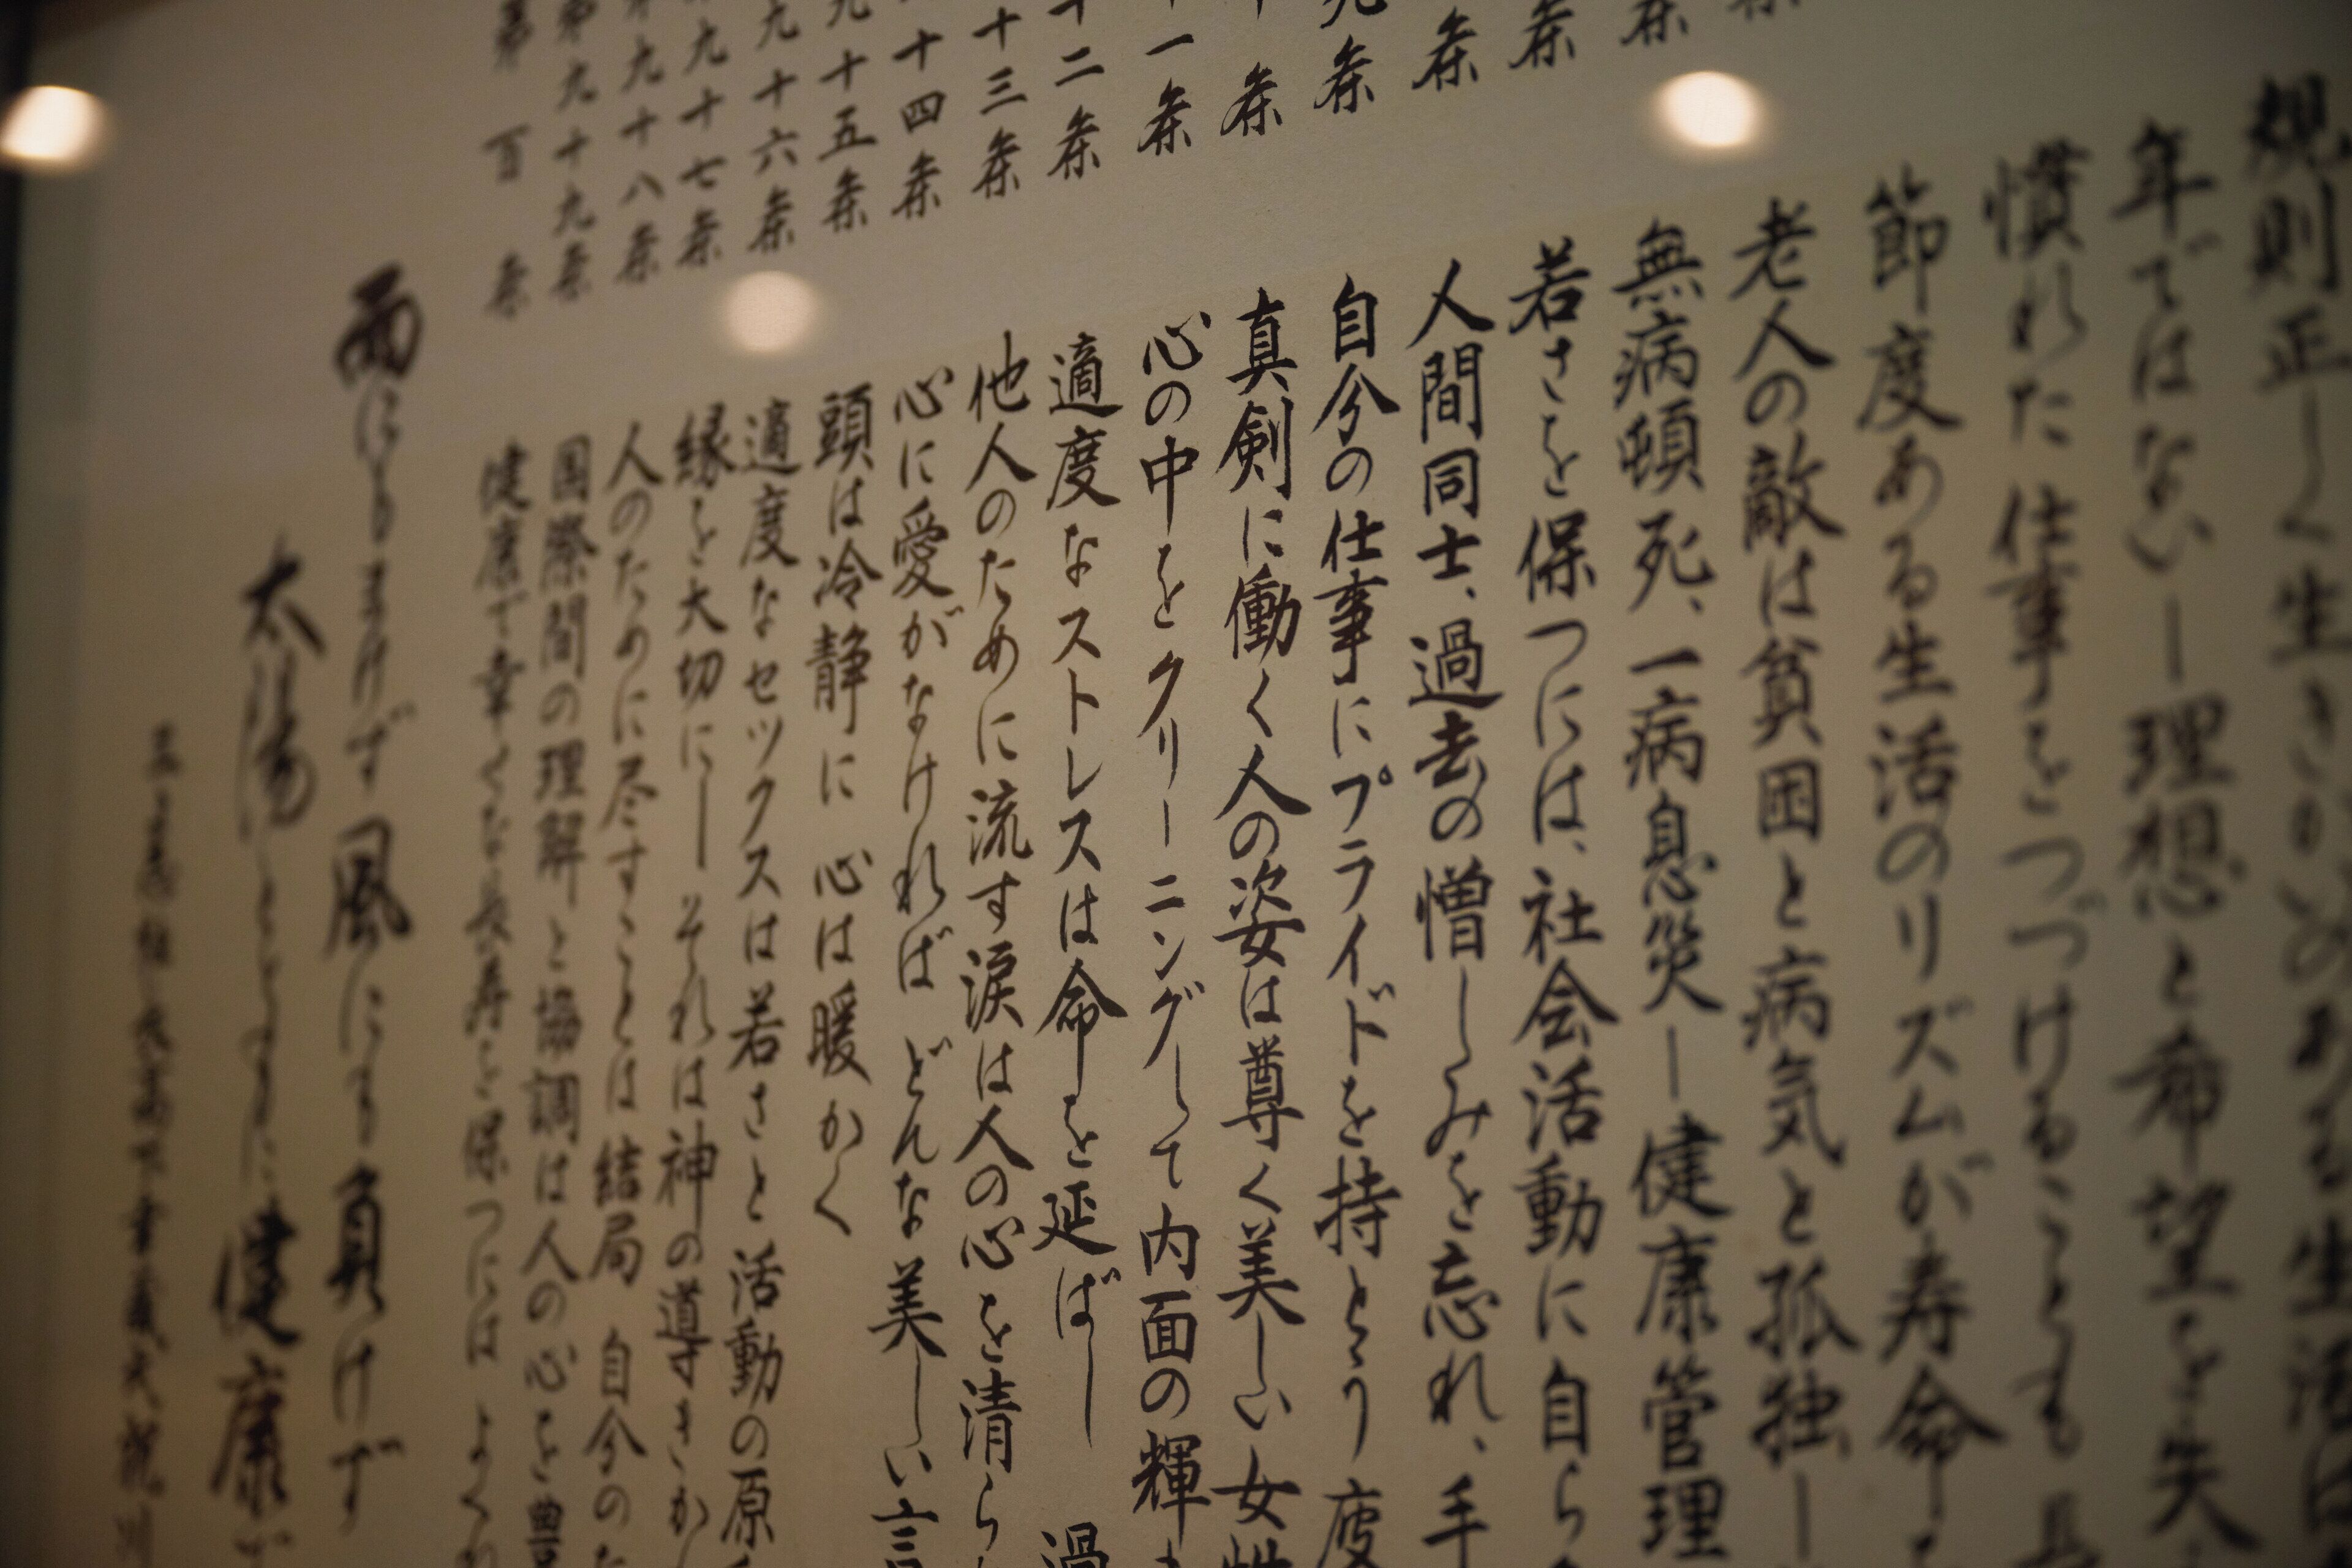 規則正しく生きがいのある生活は
年ではない―理想と希望を失
慣れた仕事をつづけることも長
節度ある生活のリズムが寿命を
老人の敵は貧困と病気と孤独―
無病頓死、一病息災―健康管理
条
若さを保つには、社会活動に自ら
条
人間同士、過去の憎しみを忘れ、手
条
自分の仕事にプライドを持とう 疲
九条
真剣に働く人の姿は尊く美しい 女性
十条
心の中をクリーニングして内面の輝き
十一条
適度なストレスは命を延ばし 過
十二条
他人のために流す涙は人の心を清ら
十三条
心に愛がなければ どんな美しい言
十四条
頭は冷静に 心は暖かく
九十五条
適度なセックスは若さと活動の原
九十六条
縁を大切に― それは神の導きか
九十七条
人のために尽すことは結局 自分のた
九十八条
国際間の理解と協調は人の心を豊
第九十九条
健康で幸せな長寿を保つには よく
第百条
雨にもまけず 風にも負けず
太陽とともに 健康